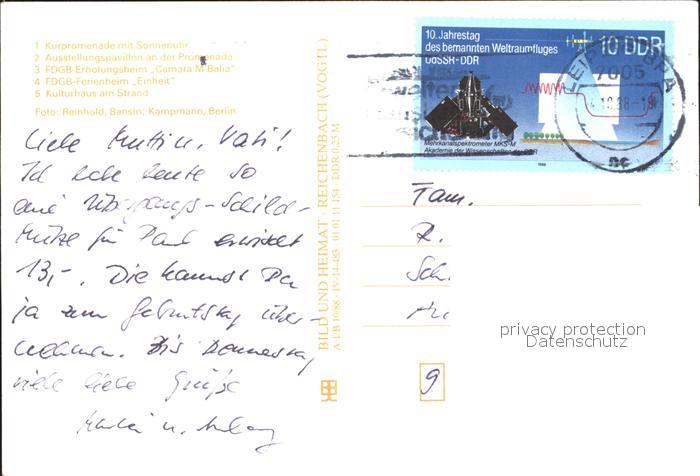 1 Kurpromenade mit Sonnenuhr
2 Ausstellungspavillon an der Promenade
3 FDGB-Erholungsheim „Camara M Balia“
4 FDGB-Ferienheim „Einheit“
5 Kulturhaus am Strand
Foto: Reinhold, Bansin; Kampmann, Berlin
Liebe Mutti u. Vati!
Ich habe heute so
eine Übergangs-Schild-
Mütze für Paul erwischt
13,-. Die kannst Du
ja zum Geburtstag über-
nehmen. Bis Donnerstag
viele liebe Grüße
u.
BILD UND HEIMAT · REICHENBACH (VOGTL)
A 1/B 10/88 · IV-14-483 · 01 01 11 154 · DDR 0,25 M
10. Jahrestag
des bemannten Weltraumfluges
UdSSR-DDR
10 DDR
Mehrkanalspektrometer MKS-M
Akademie der Wissenschaften der DDR
1988
7005
Fam.
R.
Sch.
privacy protection
Datenschutz
9